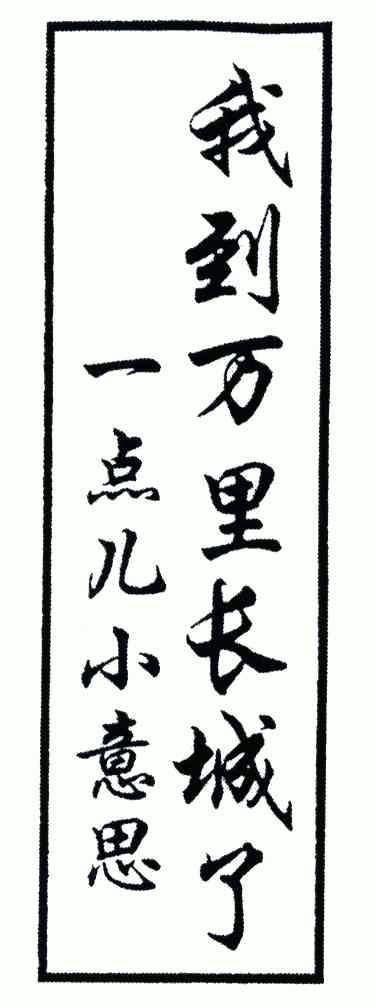 我到万里长城了
一点儿小意思